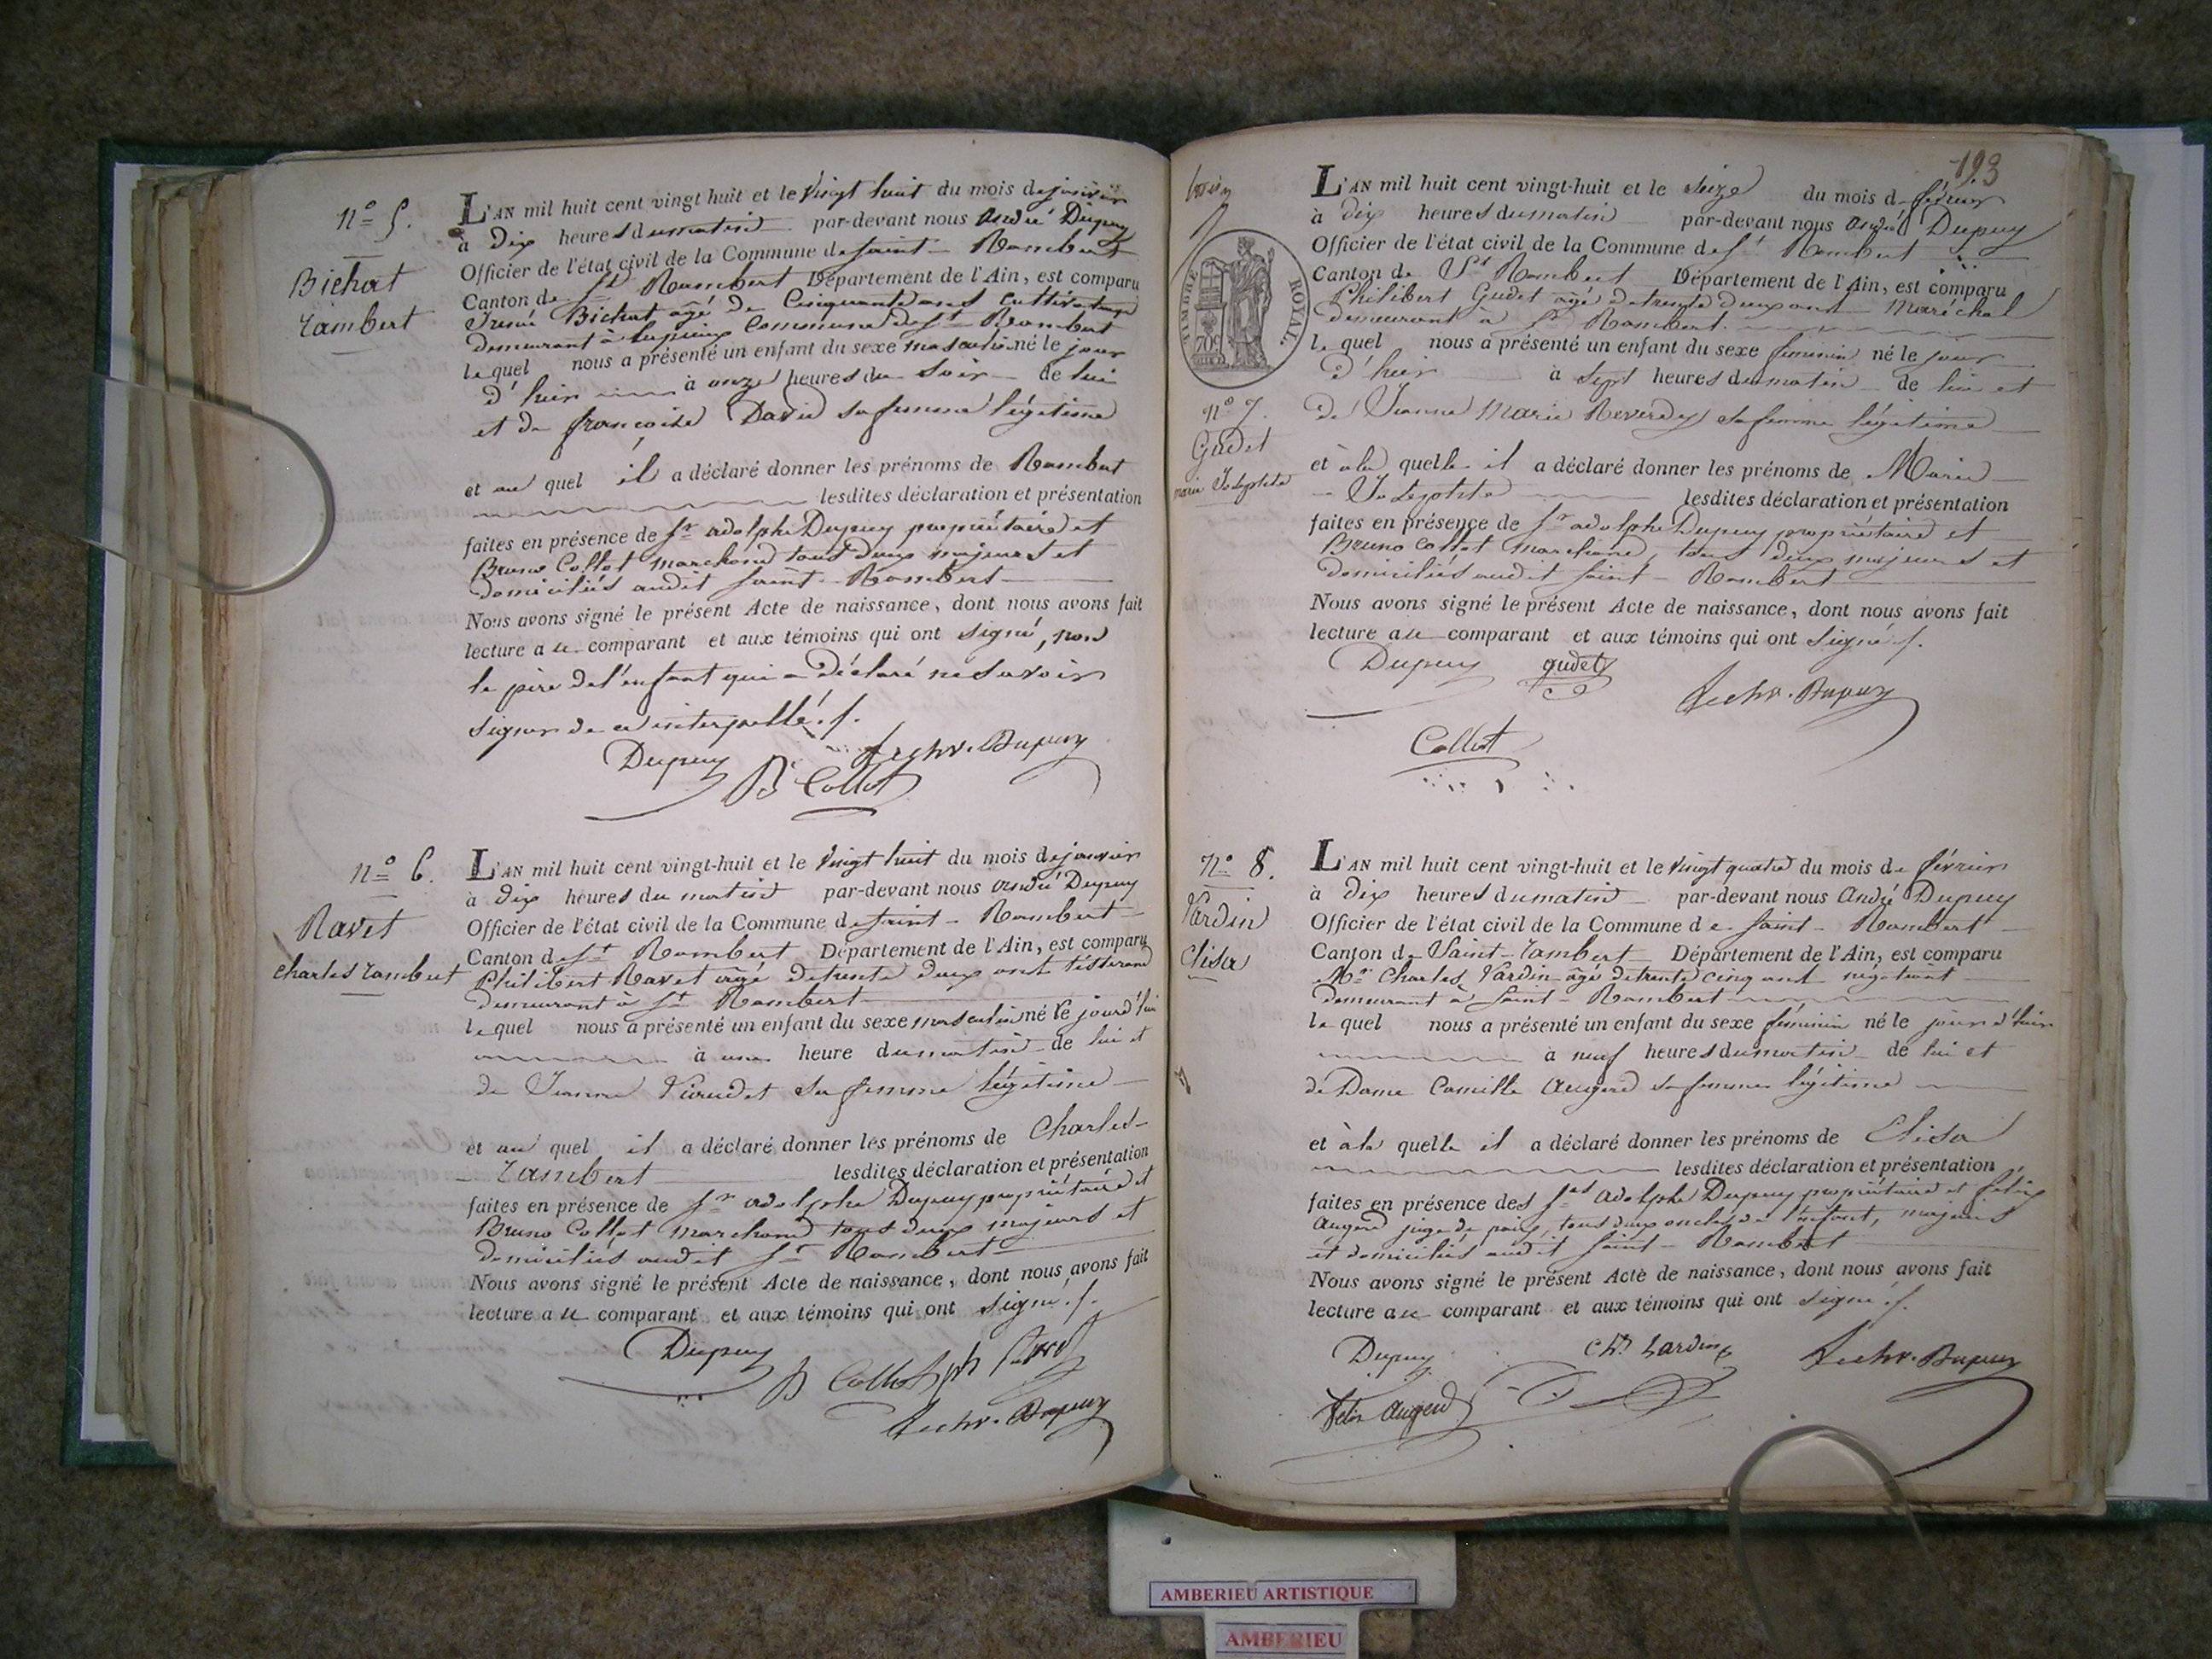 n° 5.
Bichat
Rambert
L'AN mil huit cent vingt huit et le vingt huit du mois de janvier
à dix heures du matin par-devant nous André Dupuy
Officier de l'état civil de la Commune de Saint-Rambert
Canton de St Rambert Département de l'Ain, est comparu
Bichat âgé de Cinquante ans cultivateur
demeurant à Commune de St Rambert
lequel nous a présenté un enfant du sexe masculin né le jour
d'hier à onze heures du soir de lui
et de françoise David sa femme légitime
et au quel il a déclaré donner les prénoms de Rambert
lesdites déclaration et présentation
faites en présence de Sr adolphe Dupuy propriétaire et
Bruno Collot marchand tous deux majeurs et
domiciliés audit Saint-Rambert
Nous avons signé le présent Acte de naissance, dont nous avons fait
lecture au comparant et aux témoins qui ont signé, non
le père de l'enfant qui a déclaré ne savoir
signer de ce interpellé.
Dupuy
B Collot
n° 6.
Ravet
Charles Rambert
L'AN mil huit cent vingt-huit et le vingt huit du mois de janvier
à dix heures du matin par-devant nous andré Dupuy
Officier de l'état civil de la Commune de Saint-Rambert
Canton de St Rambert Département de l'Ain, est comparu
Philibert Ravet âgé de trente deux ans tisserand
demeurant à St Rambert
lequel nous a présenté un enfant du sexe masculin né le jourd'hui
à une heure du matin de lui et
de Jeanne sa femme légitime
et au quel il a déclaré donner les prénoms de Charles-
Rambert lesdites déclaration et présentation
faites en présence de Sr adolphe Dupuy propriétaire et
Bruno Collot marchand tous deux majeurs et
domiciliés audit St Rambert
Nous avons signé le présent Acte de naissance, dont nous avons fait
lecture au comparant et aux témoins qui ont signé.
Dupuy
B Collot
193
TIMBRE ROYAL
n° 7.
Gudet
marie Josephte
L'AN mil huit cent vingt-huit et le seize du mois de février
à dix heures du matin par-devant nous André Dupuy
Officier de l'état civil de la Commune de St Rambert
Canton de St Rambert Département de l'Ain, est comparu
Philibert Gudet âgé de trente deux ans Maréchal
demeurant à St Rambert.
lequel nous a présenté un enfant du sexe féminin né le jour
d'hier à sept heures du matin de lui et
de Jeanne Marie Reverdy sa femme légitime
et à la quelle il a déclaré donner les prénoms de Marie
Josephte lesdites déclaration et présentation
faites en présence de Sr adolphe Dupuy propriétaire et
Bruno Collot marchand, tous deux majeurs et
domiciliés audit Saint-Rambert
Nous avons signé le présent Acte de naissance, dont nous avons fait
lecture au comparant et aux témoins qui ont signé.
Dupuy gudet
Collot
N° 8.
Vardin
Elisa
L'AN mil huit cent vingt-huit et le vingt quatre du mois de février
à dix heures du matin par-devant nous André Dupuy
Officier de l'état civil de la Commune de Saint-Rambert
Canton de Saint-Rambert Département de l'Ain, est comparu
Mr Charles Vardin âgé de trente cinq ans négotiant
demeurant à Saint-Rambert
lequel nous a présenté un enfant du sexe féminin né le jour d'hier
à neuf heures du matin de lui et
de Dame Camille Augerd sa femme légitime
et à la quelle il a déclaré donner les prénoms de Elisa
lesdites déclaration et présentation
faites en présence des Srs Adolphe Dupuy propriétaire et félix
Augerd juge de paix, tous deux oncles de l'enfant, majeurs
et domiciliés audit Saint-Rambert
Nous avons signé le présent Acte de naissance, dont nous avons fait
lecture au comparant et aux témoins qui ont signé.
Dupuy
felix Augerd
AMBERIEU ARTISTIQUE
AMBERIEU